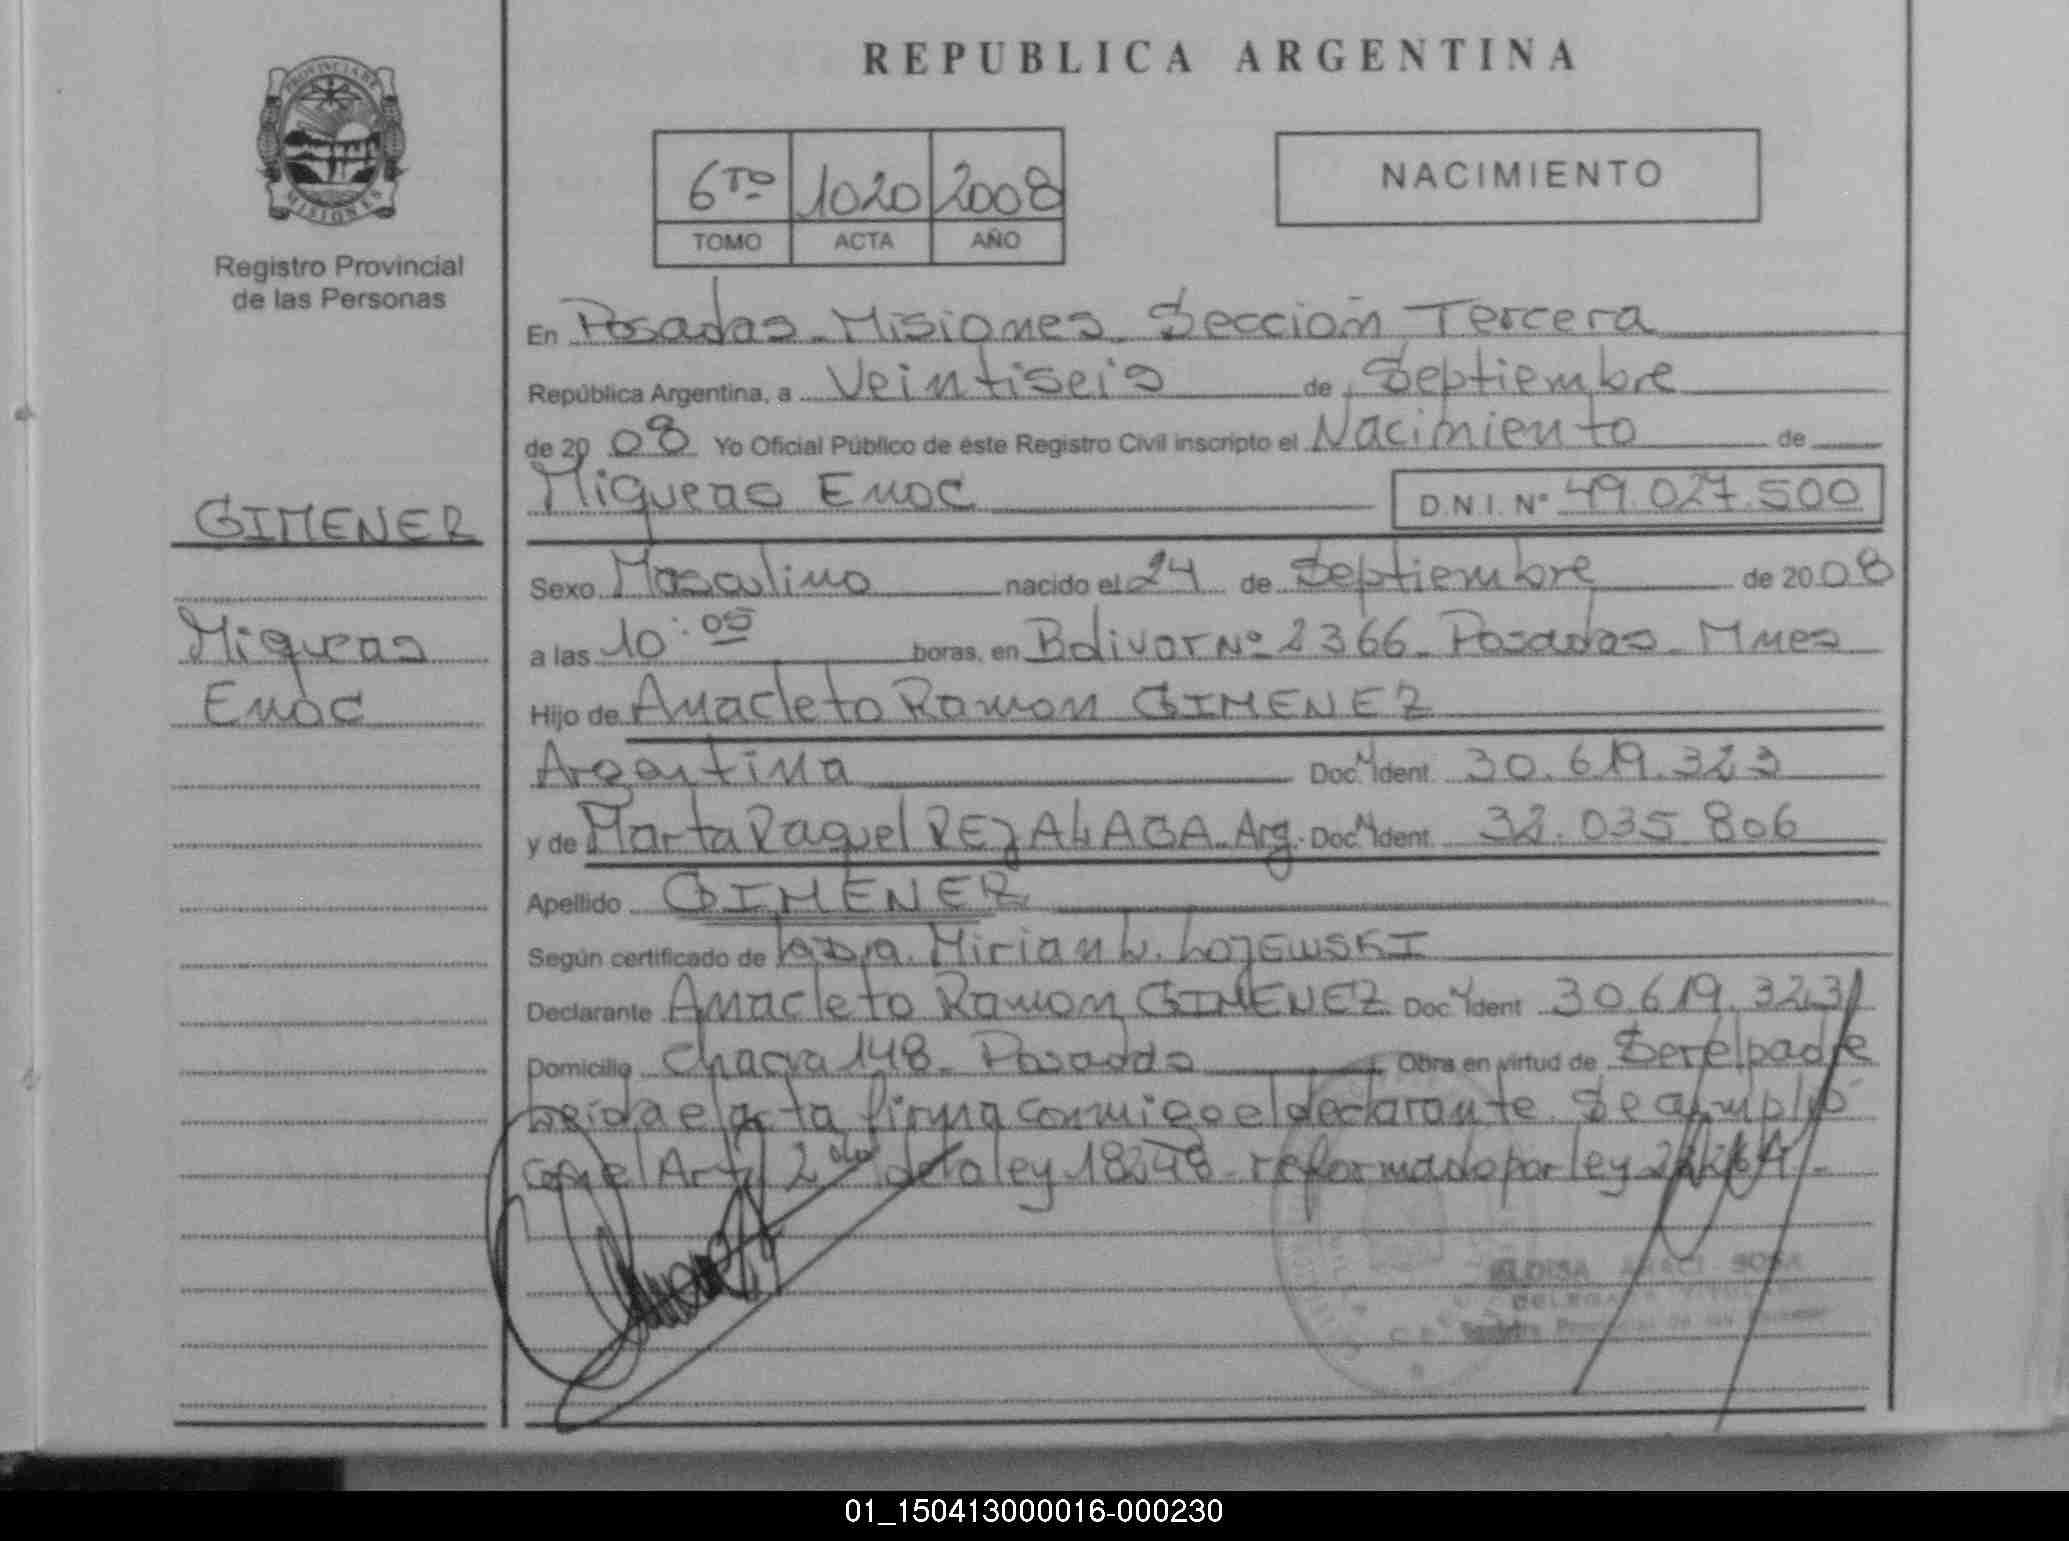 REPUBLICA ARGENTINA
PROVINCIA DE
MISIONES
Registro Provincial
de las Personas
6TO 1020 2008
TOMO ACTA AÑO
NACIMIENTO
En Posadas - Misiones. Sección Tercera
República Argentina, a Veintiseis de Septiembre
de 2008 Yo Oficial Público de éste Registro Civil inscripto el Nacimiento de
Miqueas Enoc D.N.I. Nº 49.027.500
GIMENER
Miqueas
Enoc
Sexo Masculino nacido el 24 de Septiembre de 2008
a las 10:05 horas, en Bolivar Nº 2366 - Posadas - Mnes
Hijo de Anacleto Ramon GIMENEZ
Argentina Doc. Ident. 30.619.323
y de Marta Raquel REJALAGA - Arg. Doc. Ident. 32.035.806
Apellido GIMENER
Según certificado de Mirian L. LOJEWSKI
Declarante Anacleto Ramon GIMENEZ Doc. Ident 30.619.323
Domicilio Chacra 148 - Posadas Obra en virtud de Ser el padre
Leída el acta firma conmigo el declarante. Se amplió
con el Art. 2do de la ley 18248 - reformado por ley
ARACI SOSA
01_150413000016-000230